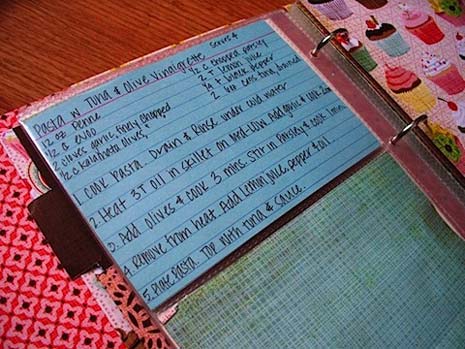 Pasta w Tuna & Olive Vinaigrette serves 4
12 oz penne
1/2 c evoo
2 cloves garlic finely chopped
1/2 c kalamata olives,
1/2 c chopped parsley
2 T lemon juice
1/4 t black pepper
2 6oz cans tuna, drained
1. Cook Pasta. Drain & Rinse under cold water
2. Heat 3T oil in skillet on med-low. Add garlic & cook 2min
3. Add olives & cook 3 mins. Stir in Parsley & cook 1min
4. Remove from heat. Add lemon juice, pepper & oil
5. Plate Pasta. Top with tuna & sauce.